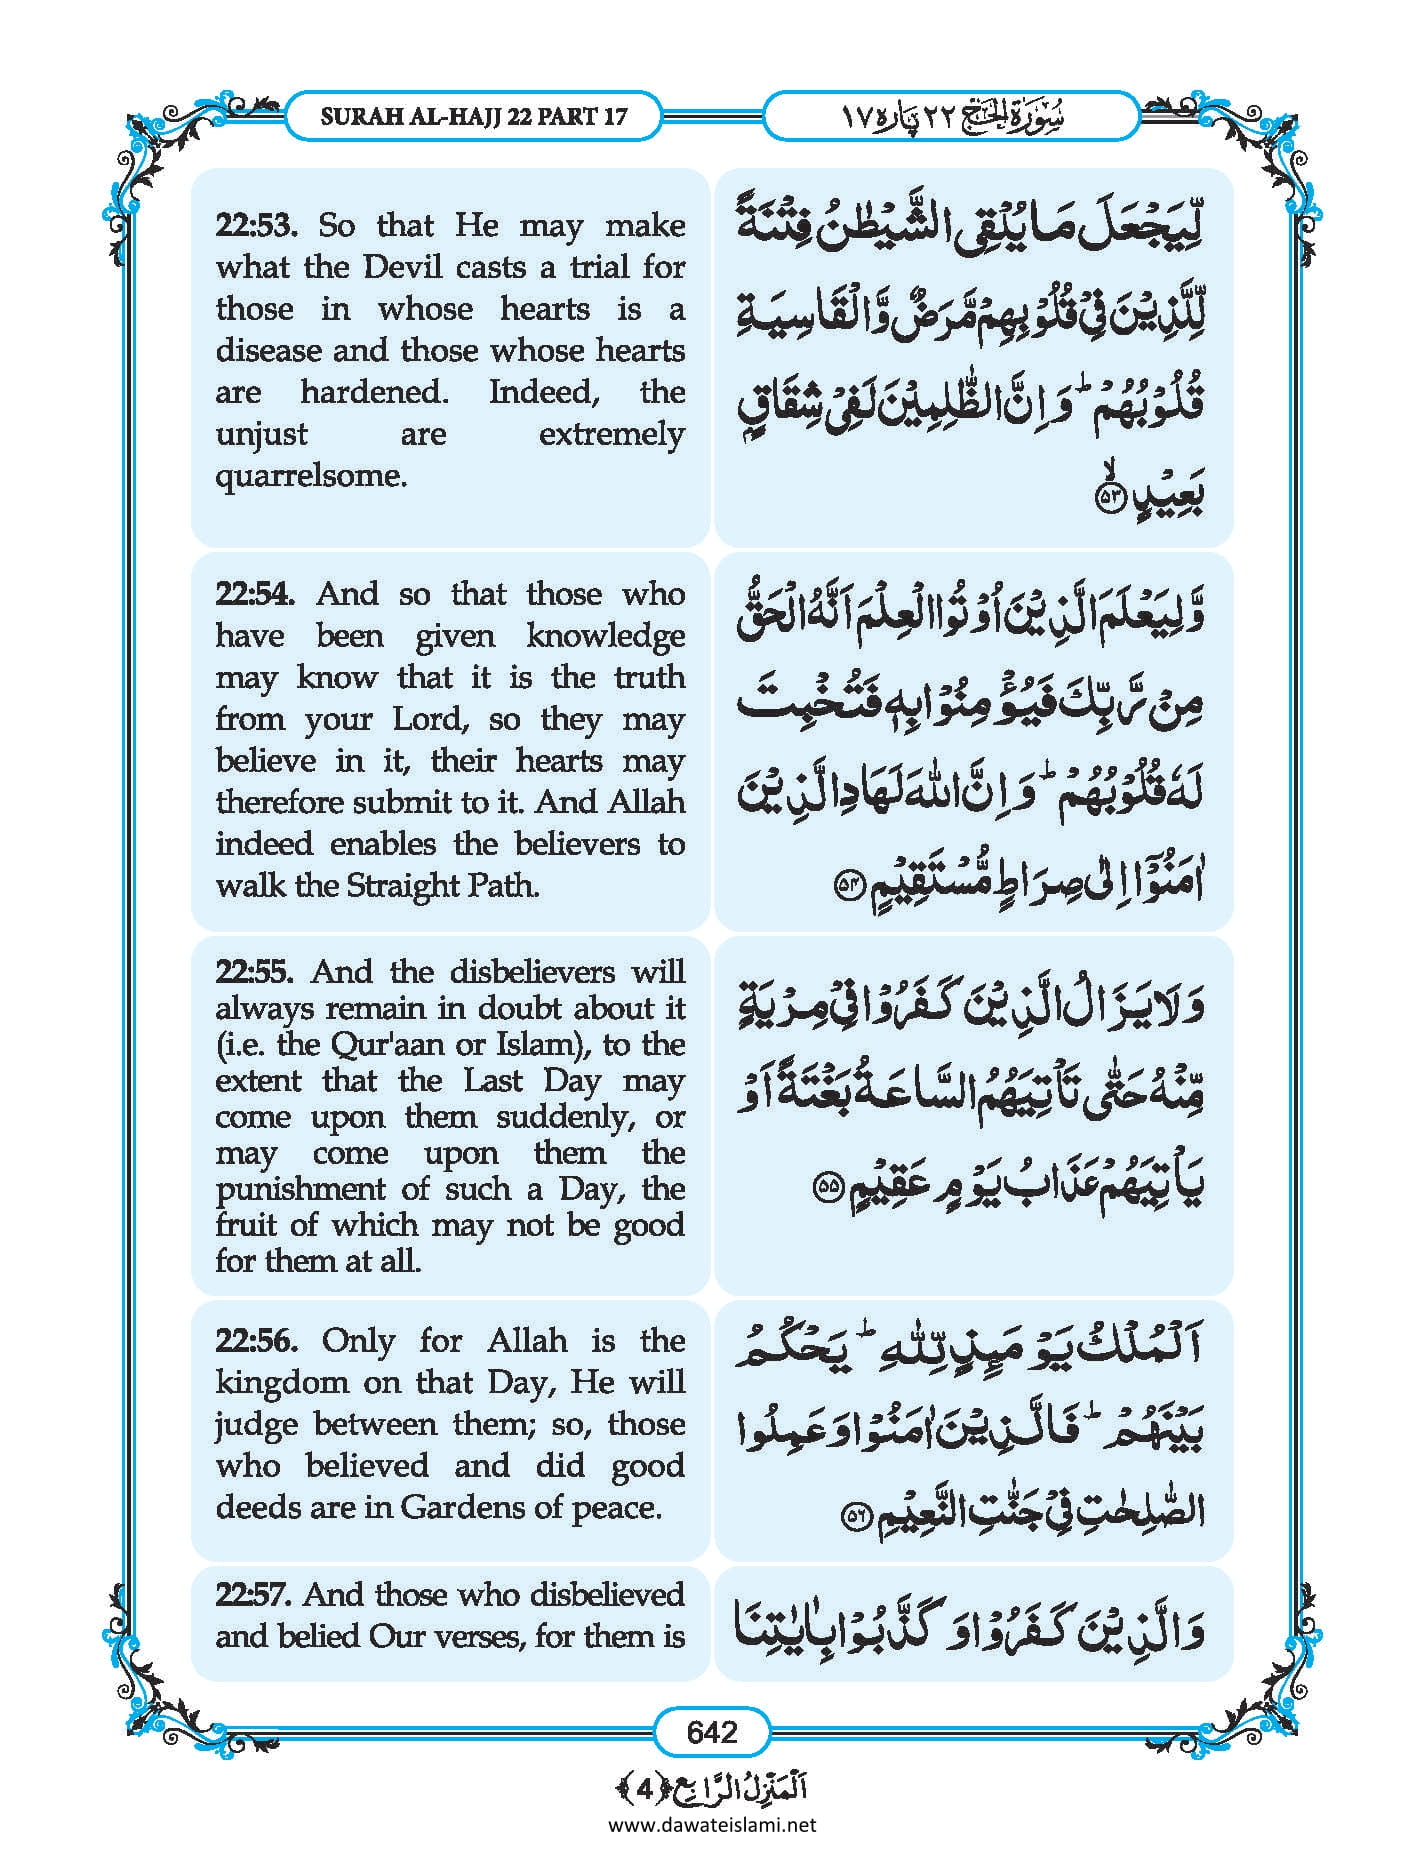 SURAH AL-HAJJ 22 PART 17
سُوْرَةُ الْحَجّ ٢٢ پاره ١٧
22:53. So that He may make
what the Devil casts a trial for
those in whose hearts is a
disease and those whose hearts
are hardened. Indeed, the
unjust are extremely
quarrelsome.
لِّیَجْعَلَ مَا یُلْقِی الشَّیْطٰنُ فِتْنَةً
لِّلَّذِیْنَ فِیْ قُلُوْبِهِمْ مَّرَضٌ وَّ الْقَاسِیَةِ
قُلُوْبُهُمْ ؕ وَ اِنَّ الظّٰلِمِیْنَ لَفِیْ شِقَاقٍۭ
بَعِیْدٍ ۙ﴿۵۳﴾
22:54. And so that those who
have been given knowledge
may know that it is the truth
from your Lord, so they may
believe in it, their hearts may
therefore submit to it. And Allah
indeed enables the believers to
walk the Straight Path.
وَّ لِیَعْلَمَ الَّذِیْنَ اُوْتُوا الْعِلْمَ اَنَّهُ الْحَقُّ
مِنْ رَّبِّكَ فَیُؤْمِنُوْا بِهٖ فَتُخْبِتَ
لَهٗ قُلُوْبُهُمْ ؕ وَ اِنَّ اللّٰهَ لَهَادِ الَّذِیْنَ
اٰمَنُوْۤا اِلٰی صِرَاطٍ مُّسْتَقِیْمٍ ﴿۵۴﴾
22:55. And the disbelievers will
always remain in doubt about it
(i.e. the Qur'aan or Islam), to the
extent that the Last Day may
come upon them suddenly, or
may come upon them the
punishment of such a Day, the
fruit of which may not be good
for them at all.
وَ لَا یَزَالُ الَّذِیْنَ كَفَرُوْا فِیْ مِرْیَةٍ
مِّنْهُ حَتّٰی تَاْتِیَهُمُ السَّاعَةُ بَغْتَةً اَوْ
یَاْتِیَهُمْ عَذَابُ یَوْمٍ عَقِیْمٍ ﴿۵۵﴾
22:56. Only for Allah is the
kingdom on that Day, He will
judge between them; so, those
who believed and did good
deeds are in Gardens of peace.
اَلْمُلْكُ یَوْمَىِٕذٍ لِّلّٰهِ ؕ یَحْكُمُ
بَیْنَهُمْ ؕ فَالَّذِیْنَ اٰمَنُوْا وَ عَمِلُوا
الصّٰلِحٰتِ فِیْ جَنّٰتِ النَّعِیْمِ ﴿۵۶﴾
22:57. And those who disbelieved
and belied Our verses, for them is
وَ الَّذِیْنَ كَفَرُوْا وَ كَذَّبُوْا بِاٰیٰتِنَا
642
اَلْمَنْزِلُ الرَّابِع ﴿4﴾
www.dawateislami.net